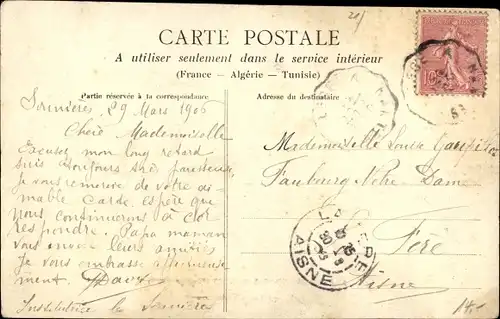 CARTE POSTALE
A utiliser seulement dans le service intérieur
(France - Algérie - Tunisie)
Partie réservée à la correspondance
Adresse du destinataire
29 Mars 1906
Chère Mademoiselle
Excusez mon long retard
suis toujours très paresseuse,
Je vous remercie de votre ai-
mable carte. Espère que
nous continuerons à cor
respondre. Papa maman
vous envoie leurs amitiés
Je vous embrasse affectueuse
ment.
Institutrice
Mademoiselle Louise
Faubourg Notre Dame
Fère
Aisne
AISNE
10